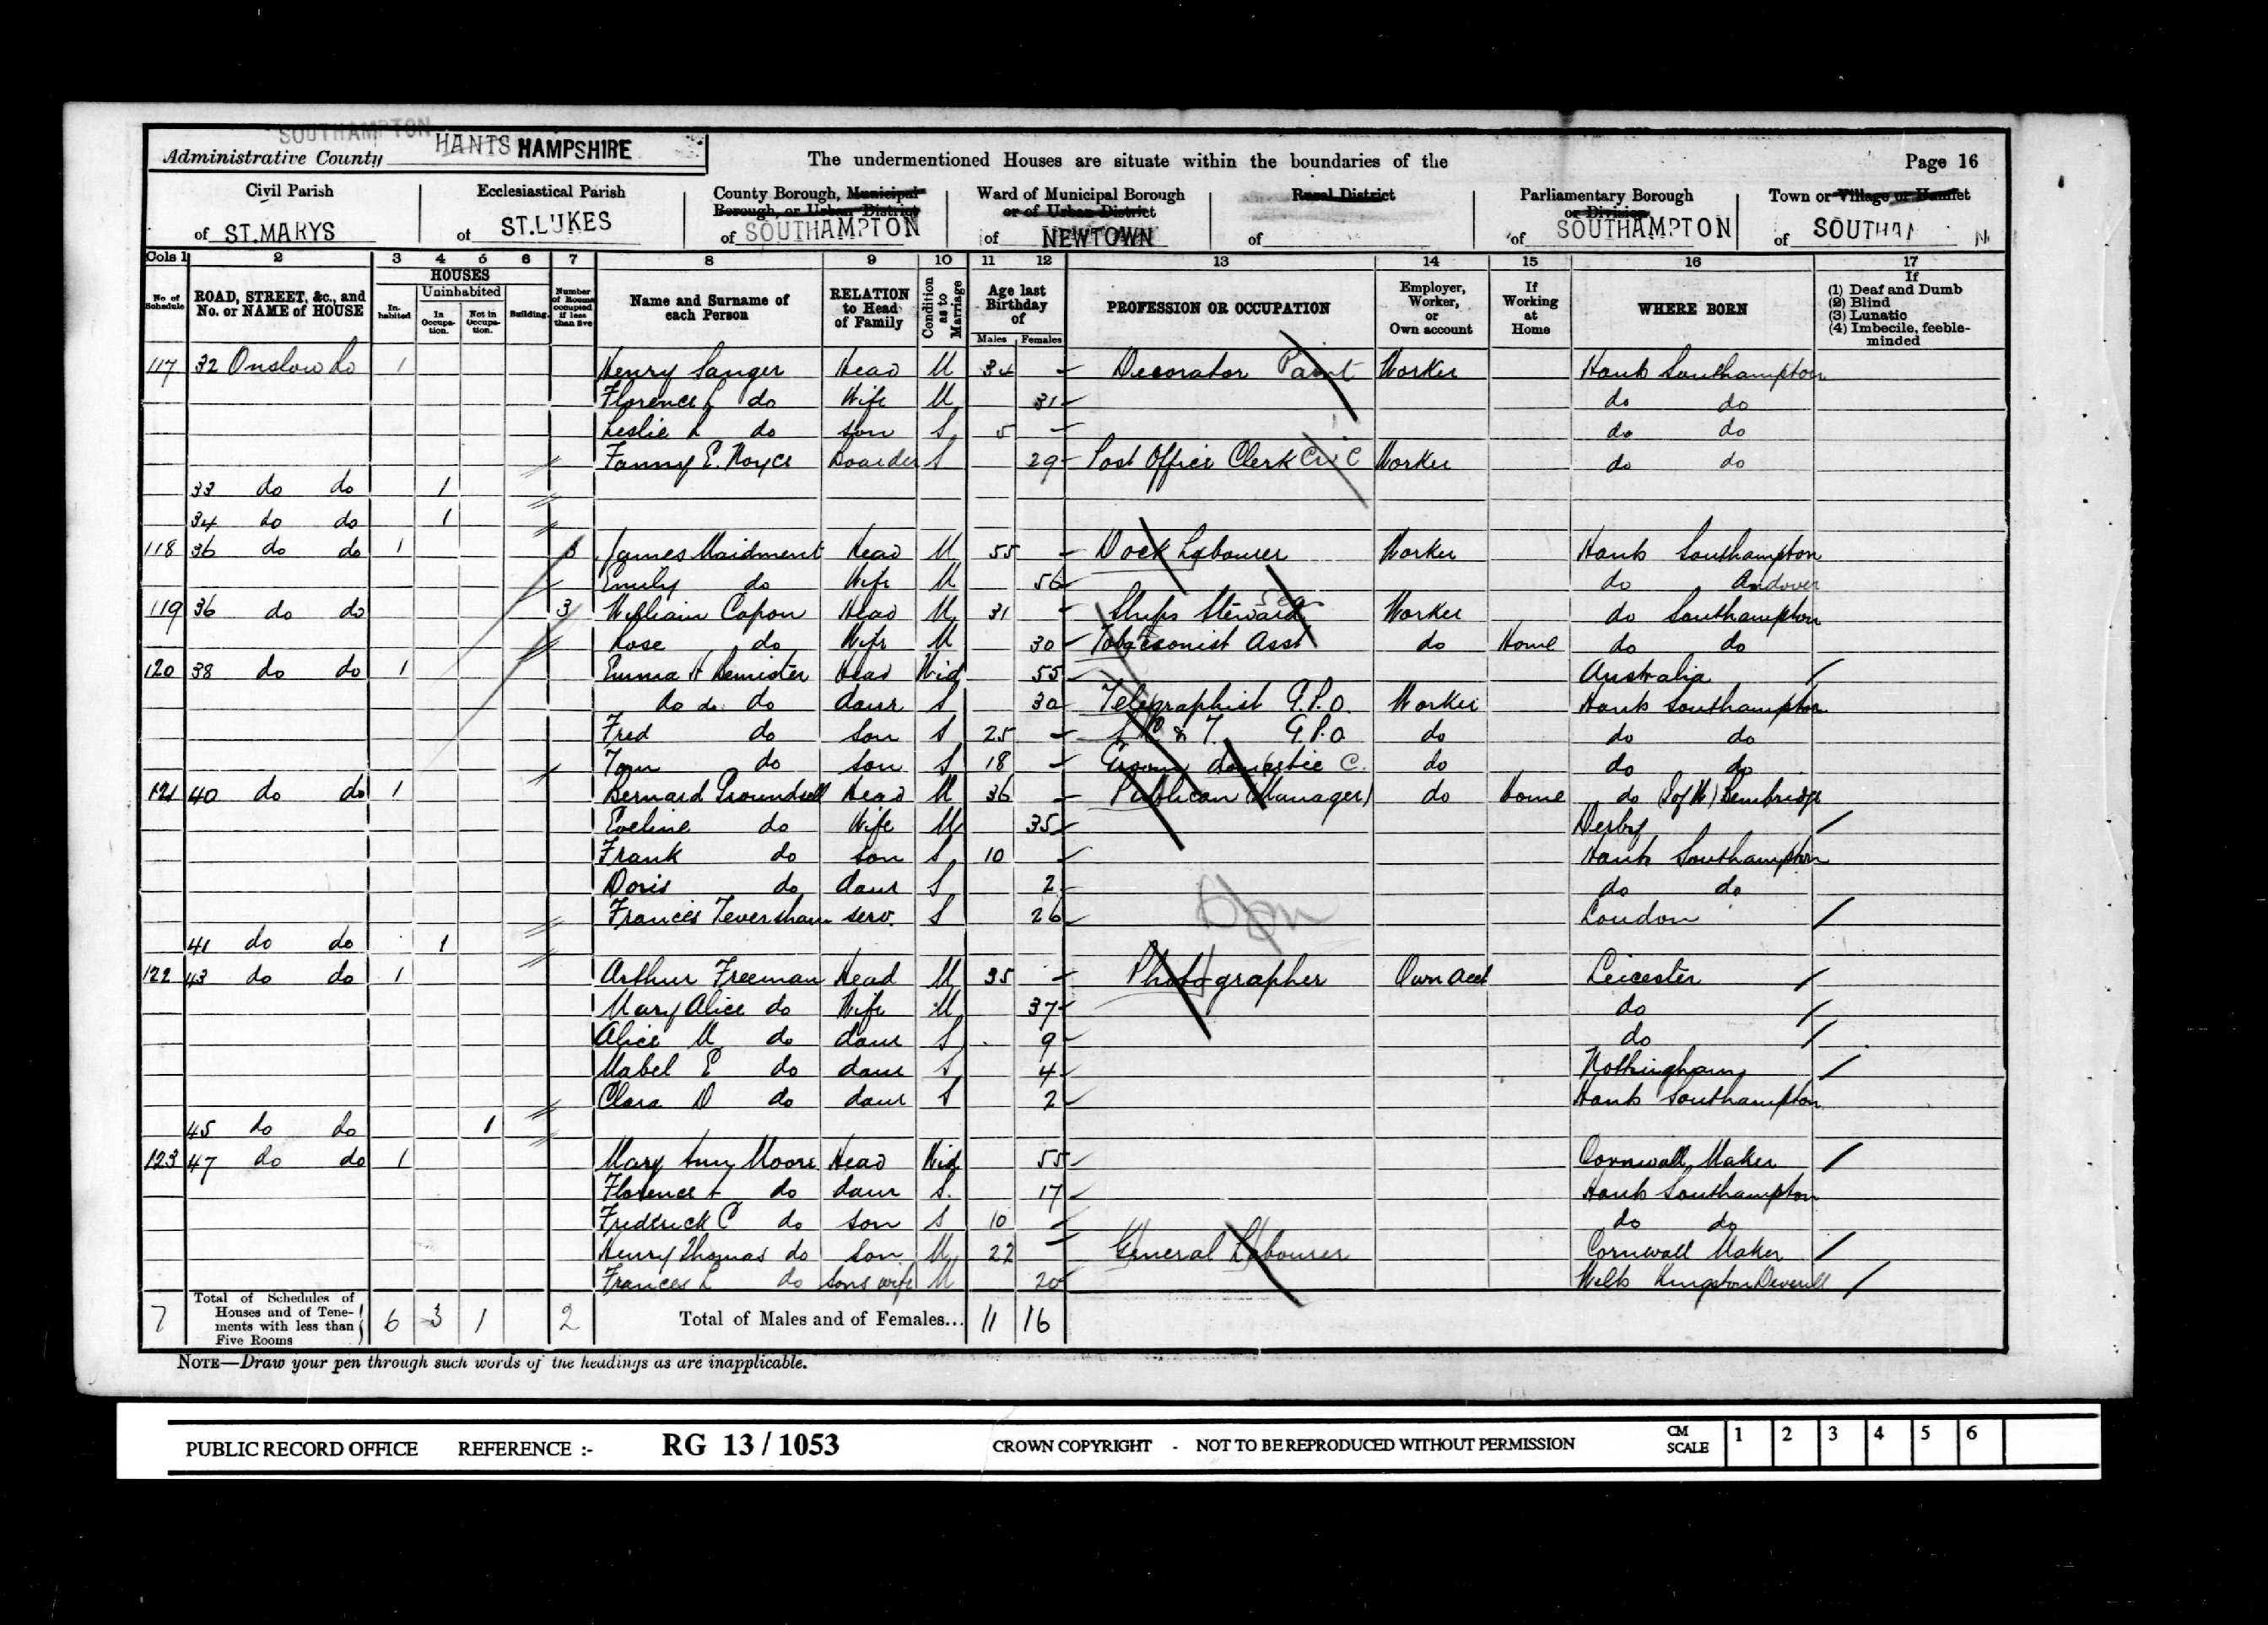 SOUTHAMPTON
Administrative County HANTS HAMPSHIRE
The undermentioned Houses are situate within the boundaries of the
Page 16
Civil Parish of ST. MARYS
Ecclesiastical Parish of ST. LUKES
County Borough, Municipal Borough, or Urban District of SOUTHAMPTON
Ward of Municipal Borough or of Urban District of NEWTOWN
Rural District of
Parliamentary Borough or Division of SOUTHAMPTON
Town or Village or Hamlet of
Cols 1 2 3 4 5 6 7 8 9 10 11 12 13 14 15 16 17
No of Schedule
ROAD, STREET, &c., and No. or NAME of HOUSE
HOUSES
Inhabited
Uninhabited
In Occupation.
Not in Occupation.
Building.
Number of Rooms occupied if less than five
Name and Surname of each Person
RELATION to Head of Family
Condition as to Marriage
Age last Birthday of
Males Females
PROFESSION OR OCCUPATION
Employer, Worker, or Own account
If Working at Home
WHERE BORN
If
(1) Deaf and Dumb
(2) Blind
(3) Lunatic
(4) Imbecile, feeble-minded
117 32 Onslow Rd 1 Henry Sanger Head M 34 - Decorator Paint Worker Hants Southampton
Florence L do Wife M 31 do do
Leslie L do son S 5 - do do
Fanny E. Noyce Boarder S 29 Post Office Clerk Civ C Worker do do
33 do do 1
34 do do 1
118 36 do do 1 3 James Maidment Head M 55 - Dock Labourer Worker Hants Southampton
Emily do Wife M 56 do Andover
119 36 do do 3 William Capon Head M 31 - Ships Steward Sea Worker do Southampton
Rose do Wife M 30 Tobacconist Asst do Home do do
120 38 do do 1 Emma H Bemister Head Wid 55 Australia
do do do daur S 30 Telegraphist G.P.O. Worker Hants Southampton
Fred do son S 25 - S.C. & T. G.P.O do do do
Tom do son S 18 - Groom domestic C. do do do
121 40 do do 1 Bernard Groundsell Head M 36 - Publican (Manager) do Home do (I of W) Bembridge
Eveline do Wife M 35 Derby
Frank do son S 10 Hants Southampton
Doris do daur S 2 do do
Frances Teversham serv. S 26 London
41 do do 1
122 43 do do 1 Arthur Freeman Head M 35 - Photographer Own acct Leicester
Mary Alice do Wife M 37 do
Alice M do daur S 9 do
Mabel E do daur S 4 Nottingham
Clara D do daur S 2 Hants Southampton
45 do do 1
123 47 do do 1 Mary Ann Moore Head Wid 55 Cornwall Maker
Florence A do daur S. 17 Hants Southampton
Frederick C do son S 10 - do do
Henry Thomas do son M 22 - General Labourer Cornwall Maker
Frances L do sons wife M 20 Wilts Kingston Deverill
7 Total of Schedules of Houses and of Tenements with less than Five Rooms 6 3 1 2 Total of Males and of Females... 11 16
NOTE—Draw your pen through such words of the headings as are inapplicable.
PUBLIC RECORD OFFICE REFERENCE :- RG 13 / 1053 CROWN COPYRIGHT - NOT TO BE REPRODUCED WITHOUT PERMISSION CM SCALE 1 2 3 4 5 6